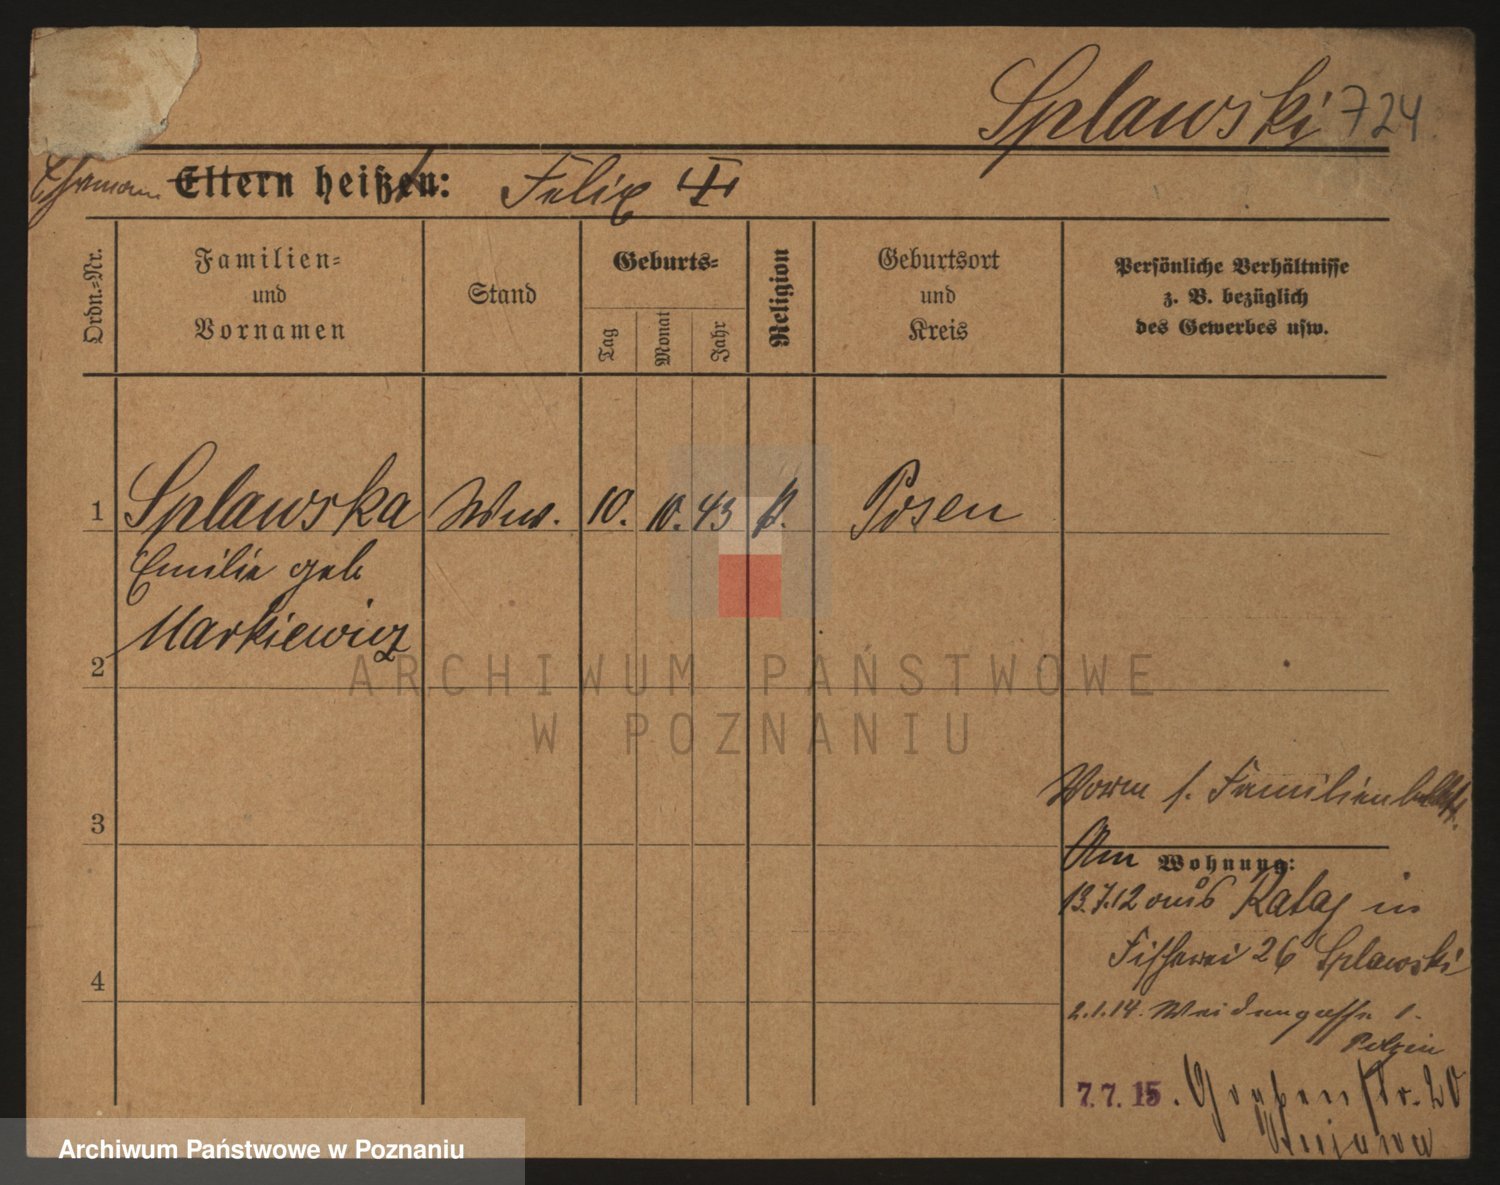 Splawski 724
Ehemann Eltern heißen: Felix
Ordn.-Nr.
Familien-
und
Vornamen
Stand
Geburts-
Tag
Monat
Jahr
Religion
Geburtsort
und
Kreis
Persönliche Verhältnisse
z. B. bezüglich
des Gewerbes usw.
1 Splawska Ww. 10. 10. 43 Posen
Emilie geb
Markiewicz
2
3
4
Vorm s.
Am Wohnung:
13.7.12 aus Rataj in
Fischerei 26 Splawski
2.1.14. Weidengasse 1.
7.7.15. Grabenstr. 20
ARCHIWUM PAŃSTWOWE
W POZNANIU
Archiwum Państwowe w Poznaniu